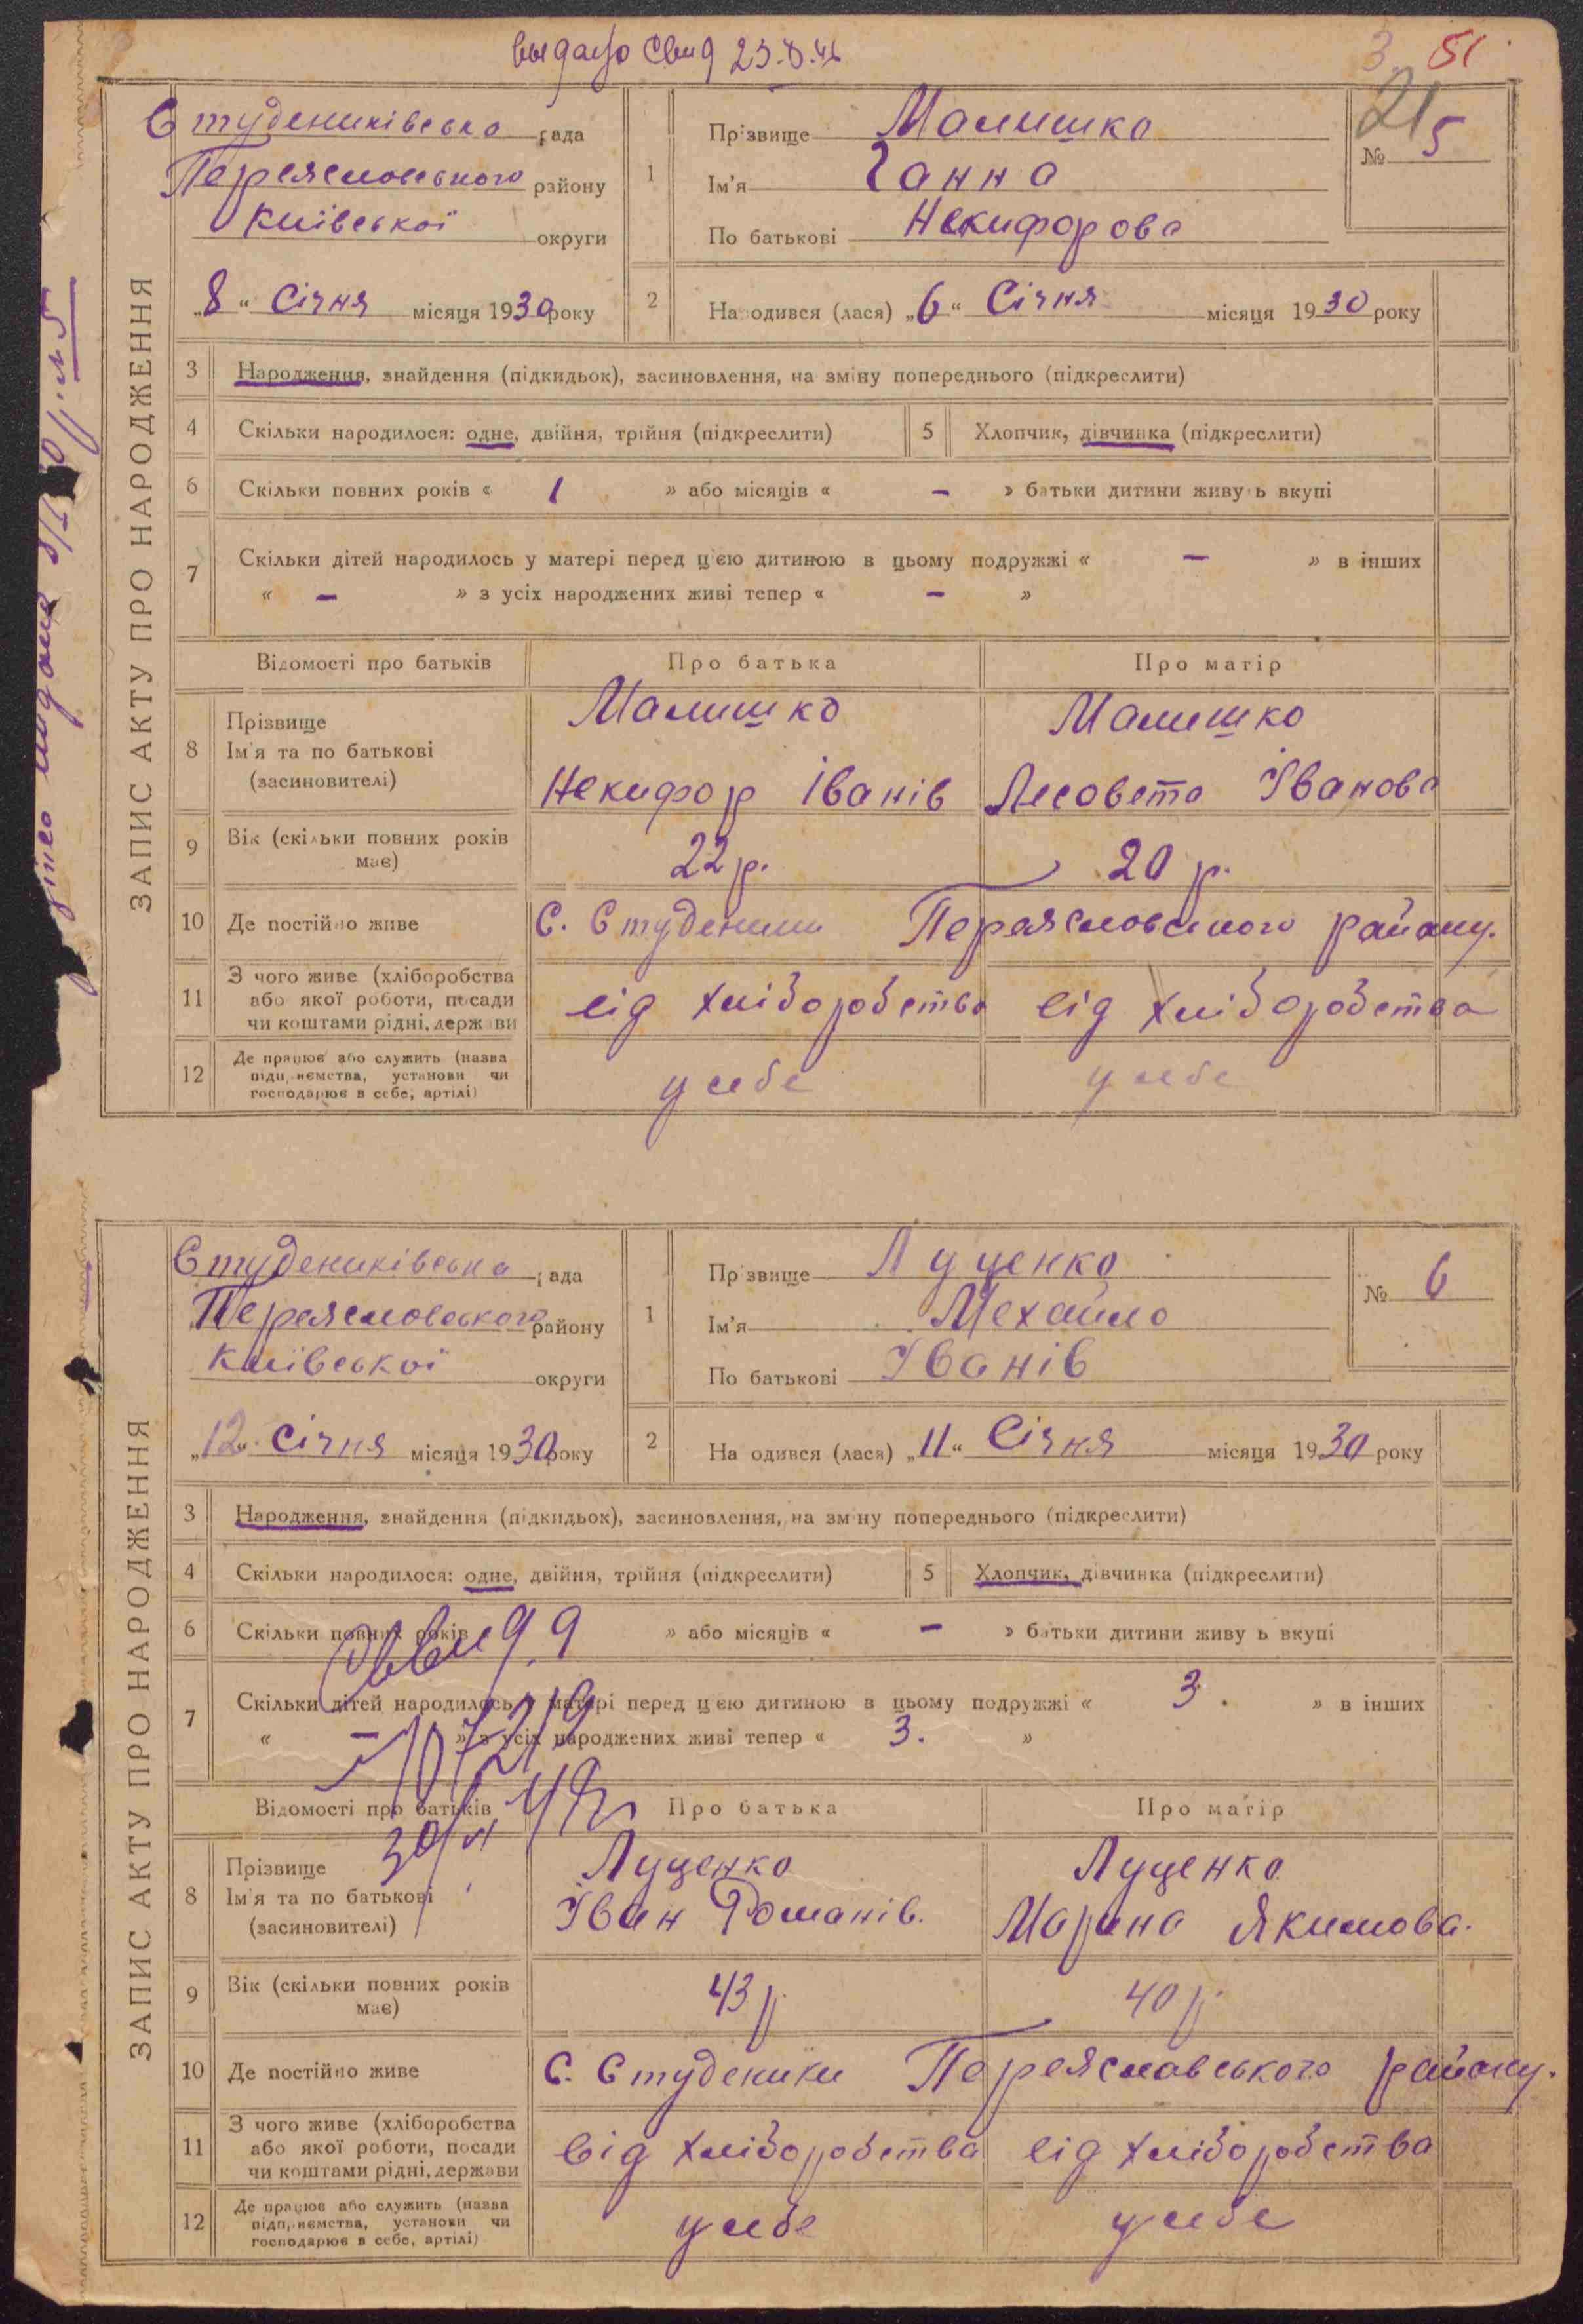 выдано Свид 23.8.46
3 51
21
ЗАПИС АКТУ ПРО НАРОДЖЕННЯ
Студениківська рада
Переяславського району
Київської округи
„8“ Січня місяця 1930 року
1
Прізвище Малишко
Ім'я Ганна
По батькові Некифорова
№ 5
2 Народився (лася) „6“ Січня місяця 1930 року
3 Народження, знайдення (підкидьок), засиновлення, на зміну попереднього (підкреслити)
4 Скільки народилося: одне, двійня, трійня (підкреслити) 5 Хлопчик, дівчинка (підкреслити)
6 Скільки повних років « 1 » або місяців « – » батьки дитини живуть вкупі
7 Скільки дітей народилось у матері перед цією дитиною в цьому подружжі « – » в інших
« – » з усіх народжених живі тепер « – »
Відомості про батьків Про батька Про матір
8 Прізвище Малишко Малишко
Ім'я та по батькові
(засиновителі) Некифор Іванів Лисовета Іванова
9 Вік (скільки повних років має) 22 р. 20 р.
10 Де постійно живе С. Студеники Переяславського району.
11 З чого живе (хліборобства
або якої роботи, посади
чи коштами рідні, держави
від хліборобства від хліборобства
12 Де працює або служить (назва
підприємства, установи чи
господарює в себе, артілі)
у себе у себе
ЗАПИС АКТУ ПРО НАРОДЖЕННЯ
Студениківська рада
Переяславського району
Київської округи
„12“ Січня місяця 1930 року
1
Прізвище Луценко
Ім'я Мехайло
По батькові Іванів
№ 6
2 Народився (лася) „11“ Січня місяця 1930 року
3 Народження, знайдення (підкидьок), засиновлення, на зміну попереднього (підкреслити)
4 Скільки народилося: одне, двійня, трійня (підкреслити) 5 Хлопчик, дівчинка (підкреслити)
6 Скільки повних років » або місяців « – » батьки дитини живуть вкупі
7 Скільки дітей народилось у матері перед цією дитиною в цьому подружжі « 3. » в інших
« – » з усіх народжених живі тепер « 3. »
Відомості про батьків Про батька Про матір
8 Прізвище Луценко Луценко
Ім'я та по батькові Іван Романів. Марина Якимова.
(засиновителі)
9 Вік (скільки повних років має) 43 р. 40 р.
10 Де постійно живе С. Студеники Переяславського району.
11 З чого живе (хліборобства
або якої роботи, посади
чи коштами рідні, держави
від хліборобства від хліборобства
12 Де працює або служить (назва
підприємства, установи чи
господарює в себе, артілі)
у себе у себе